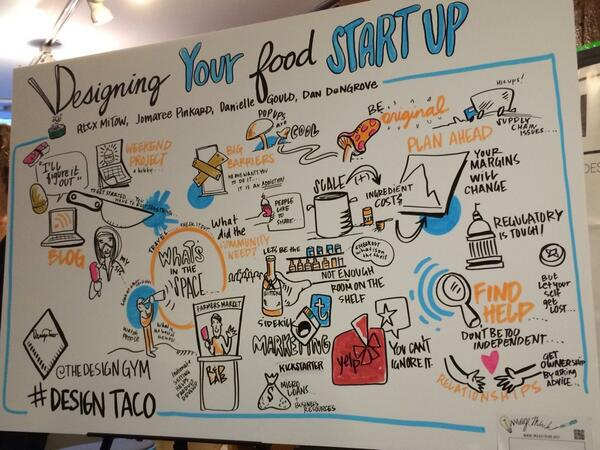 Designing YOUR food START UP
ALEX MITOW, JOMAREE PINKARD, DANIELLE GOULD, DAN DENGROVE
"I'LL
figure it
OUT"
WEEKEND
PROJECT
a hobby...
BIG
BARRIERS
POPUPS
are
COOL
BE
original
Hiccups!
SUPPLY
CHAIN
ISSUES...
PLAN AHEAD
YOUR
MARGINS
WILL
CHANGE
SCALE (+)
INGREDIENT
COSTS
PEOPLE
LIKE TO
SHARE...
BLOG
What
did the
COMMUNITY
NEED?
WHAT'S
IN THE
SPACE...
REGULATORY
IS TOUGH!
NOT ENOUGH
ROOM ON THE
SHELF
BITTERS
FARMERS MARKET
R&D
LAB
SIDEKICK
MARKETING
t
yelp
YOU CAN'T
IGNORE IT.
KICKSTARTER
MICRO
LOANS...
BUSINESS
RESOURCES
FIND
HELP...
BUT
LET YOUR
SELF
get
LOST...
DON'T BE TOO
INDEPENDENT....
RELATIONSHIPS
GET
OWNERSHIP
BY ASKING
ADVICE...
@THEDESIGNGYM
#DESIGN TACO
ImageThink